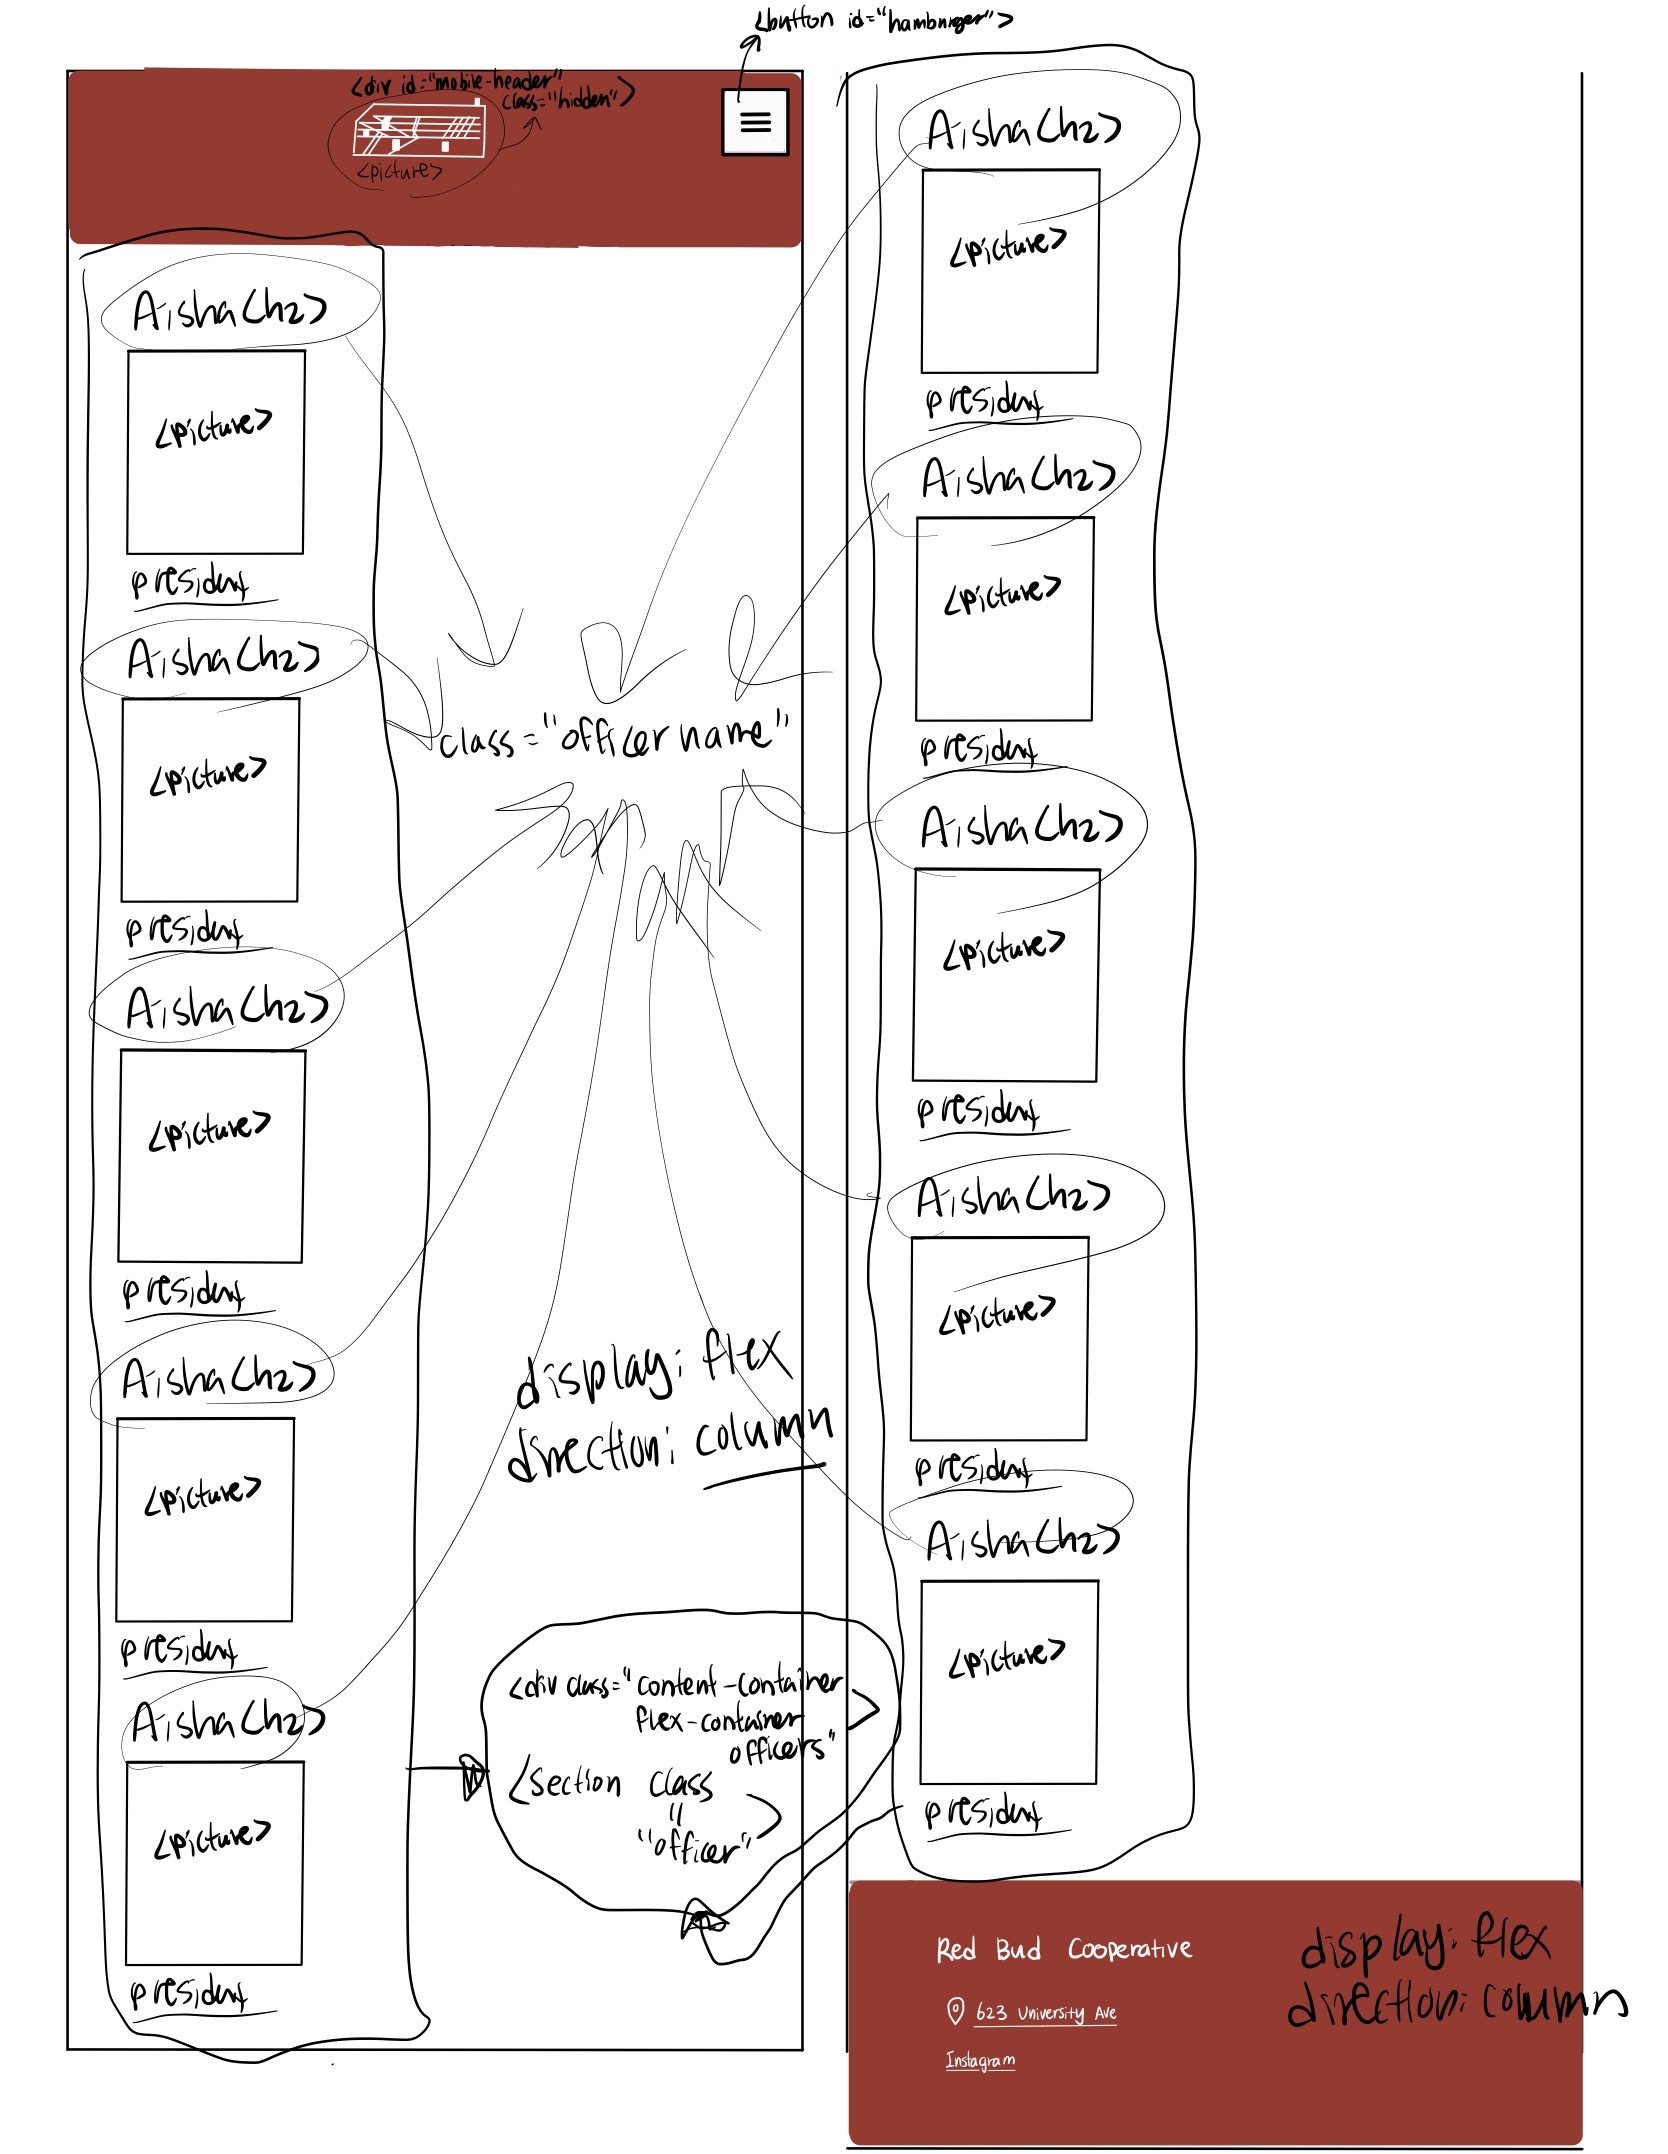 <button id="hamburger">
<div id="mobile-header"
class="hidden">
<picture>
Aisha<h2>
<picture>
president
Aisha<h2>
<picture>
president
Aisha<h2>
<picture>
president
Aisha<h2>
<picture>
president
Aisha<h2>
<picture>
president
class="officer name"
display: flex
direction: column
<div class="content-container
flex-container
officers">
<section class
=
"officer">
Aisha<h2>
<picture>
president
Aisha<h2>
<picture>
president
Aisha<h2>
<picture>
president
Aisha<h2>
<picture>
president
Aisha<h2>
<picture>
president
Red Bud Cooperative
623 University Ave
Instagram
display: flex
direction: column